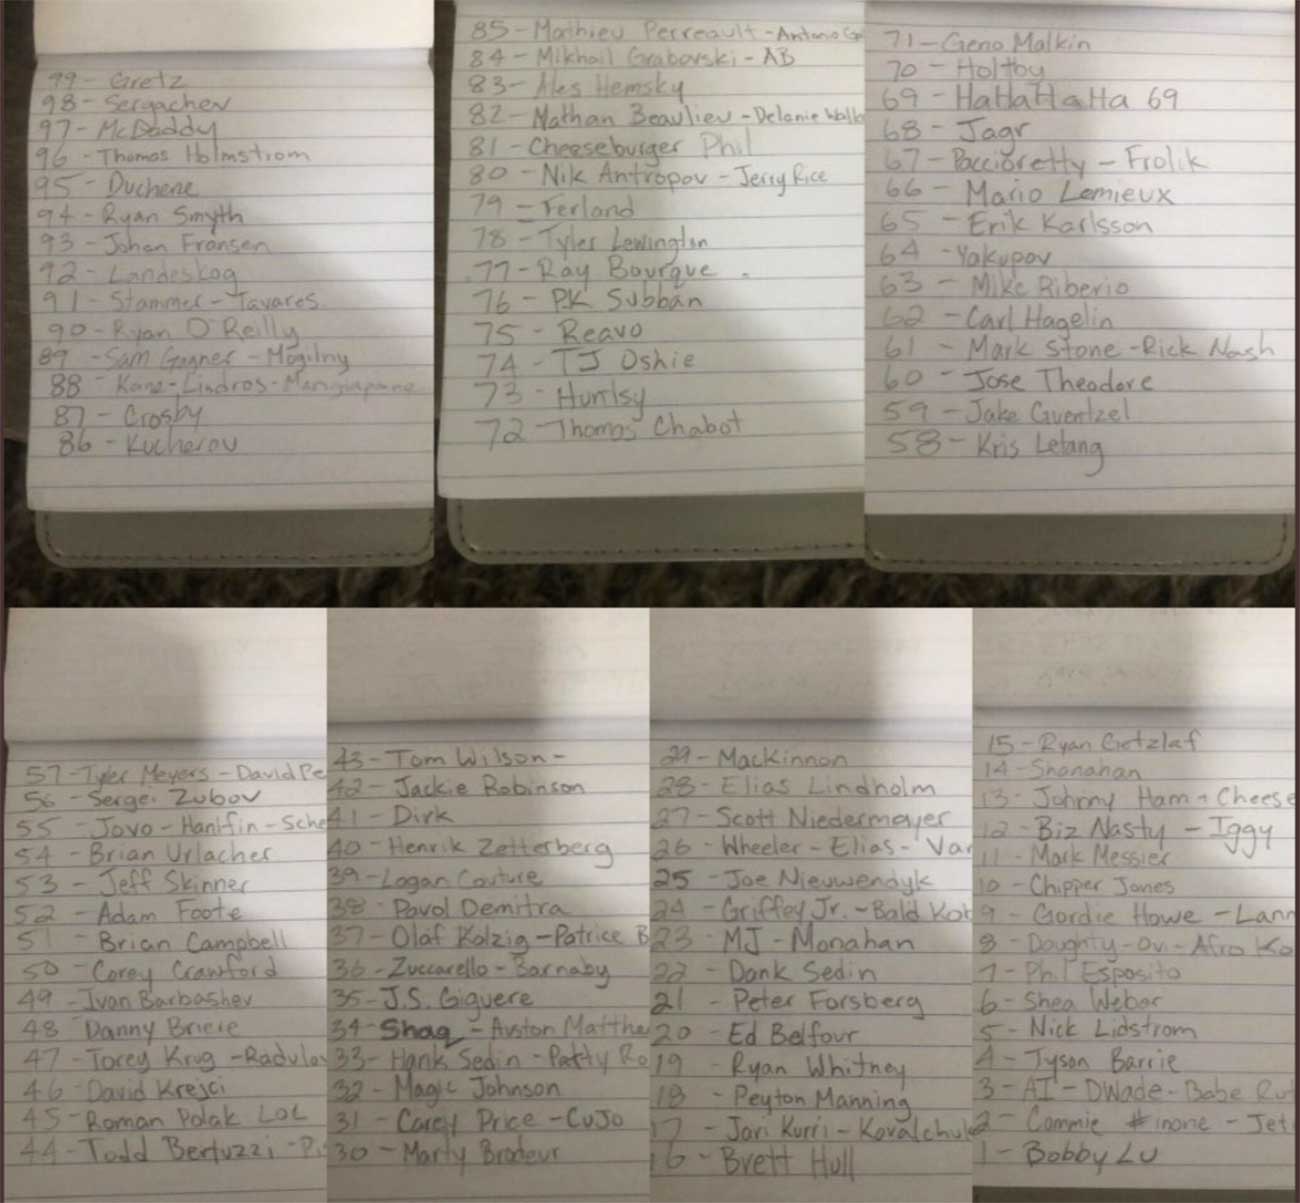 99 - Gretz
98 - Sergachev
97 - McDaddy
96 - Thomas Holmstrom
95 - Duchene
94 - Ryan Smyth
93 - Johan Fransen
92 - Landeskog
91 - Stammer - Tavares
90 - Ryan O'Reilly
89 - Sam Gagner - Mogilny
88 - Kane - Lindros - Mangiapane
87 - Crosby
86 - Kucherov
85 - Mathieu Perreault - Antonio Ga
84 - Mikhail Grabovski - AB
83 - Ales Hemsky
82 - Nathan Beaulieu - Delanie Walk
81 - Cheeseburger Phil
80 - Nik Antropov - Jerry Rice
79 - Ferland
78 - Tyler Lewington
77 - Ray Bourque
76 - PK Subban
75 - Reavo
74 - TJ Oshie
73 - Huntsy
72 - Thomas Chabot
71 - Geno Malkin
70 - Holtby
69 - HaHaHaHa 69
68 - Jagr
67 - Paccioretty - Frolik
66 - Mario Lemieux
65 - Erik Karlsson
64 - Yakupov
63 - Mike Riberio
62 - Carl Hagelin
61 - Mark Stone - Rick Nash
60 - Jose Theodore
59 - Jake Guentzel
58 - Kris Letang
57 - Tyler Meyers - David Pe
56 - Sergei Zubov
55 - Jovo - Hanifin - Sche
54 - Brian Urlacher
53 - Jeff Skinner
52 - Adam Foote
51 - Brian Campbell
50 - Corey Crawford
49 - Ivan Barbashev
48 - Danny Briere
47 - Torey Krug - Radulov
46 - David Krejci
45 - Roman Polak LOL
44 - Todd Bertuzzi - Pi
43 - Tom Wilson -
42 - Jackie Robinson
41 - Dirk
40 - Henrik Zetterberg
39 - Logan Couture
38 - Pavol Demitra
37 - Olaf Kolzig - Patrice B
36 - Zuccarello - Barnaby
35 - J.S. Giguere
34 - Shaq - Auston Matthe
33 - Hank Sedin - Patty Ro
32 - Magic Johnson
31 - Carey Price - CuJo
30 - Marty Brodeur
29 - Mackinnon
28 - Elias Lindholm
27 - Scott Niedermayer
26 - Wheeler - Elias - Van
25 - Joe Nieuwendyk
24 - Griffey Jr. - Bald Kob
23 - MJ - Monahan
22 - Dank Sedin
21 - Peter Forsberg
20 - Ed Belfour
19 - Ryan Whitney
18 - Peyton Manning
17 - Jari Kurri - Kovalchuk
16 - Brett Hull
15 - Ryan Getzlaf
14 - Shanahan
13 - Johnny Ham + Cheese
12 - Biz Nasty - Iggy
11 - Mark Messier
10 - Chipper Jones
9 - Gordie Howe - Lann
8 - Doughty - Ovi - Afro Ko
7 - Phil Esposito
6 - Shea Weber
5 - Nick Lidstrom
4 - Tyson Barrie
3 - AI - DWade - Babe Ru
2 - Commie #inone - Jet
1 - Bobby Lu